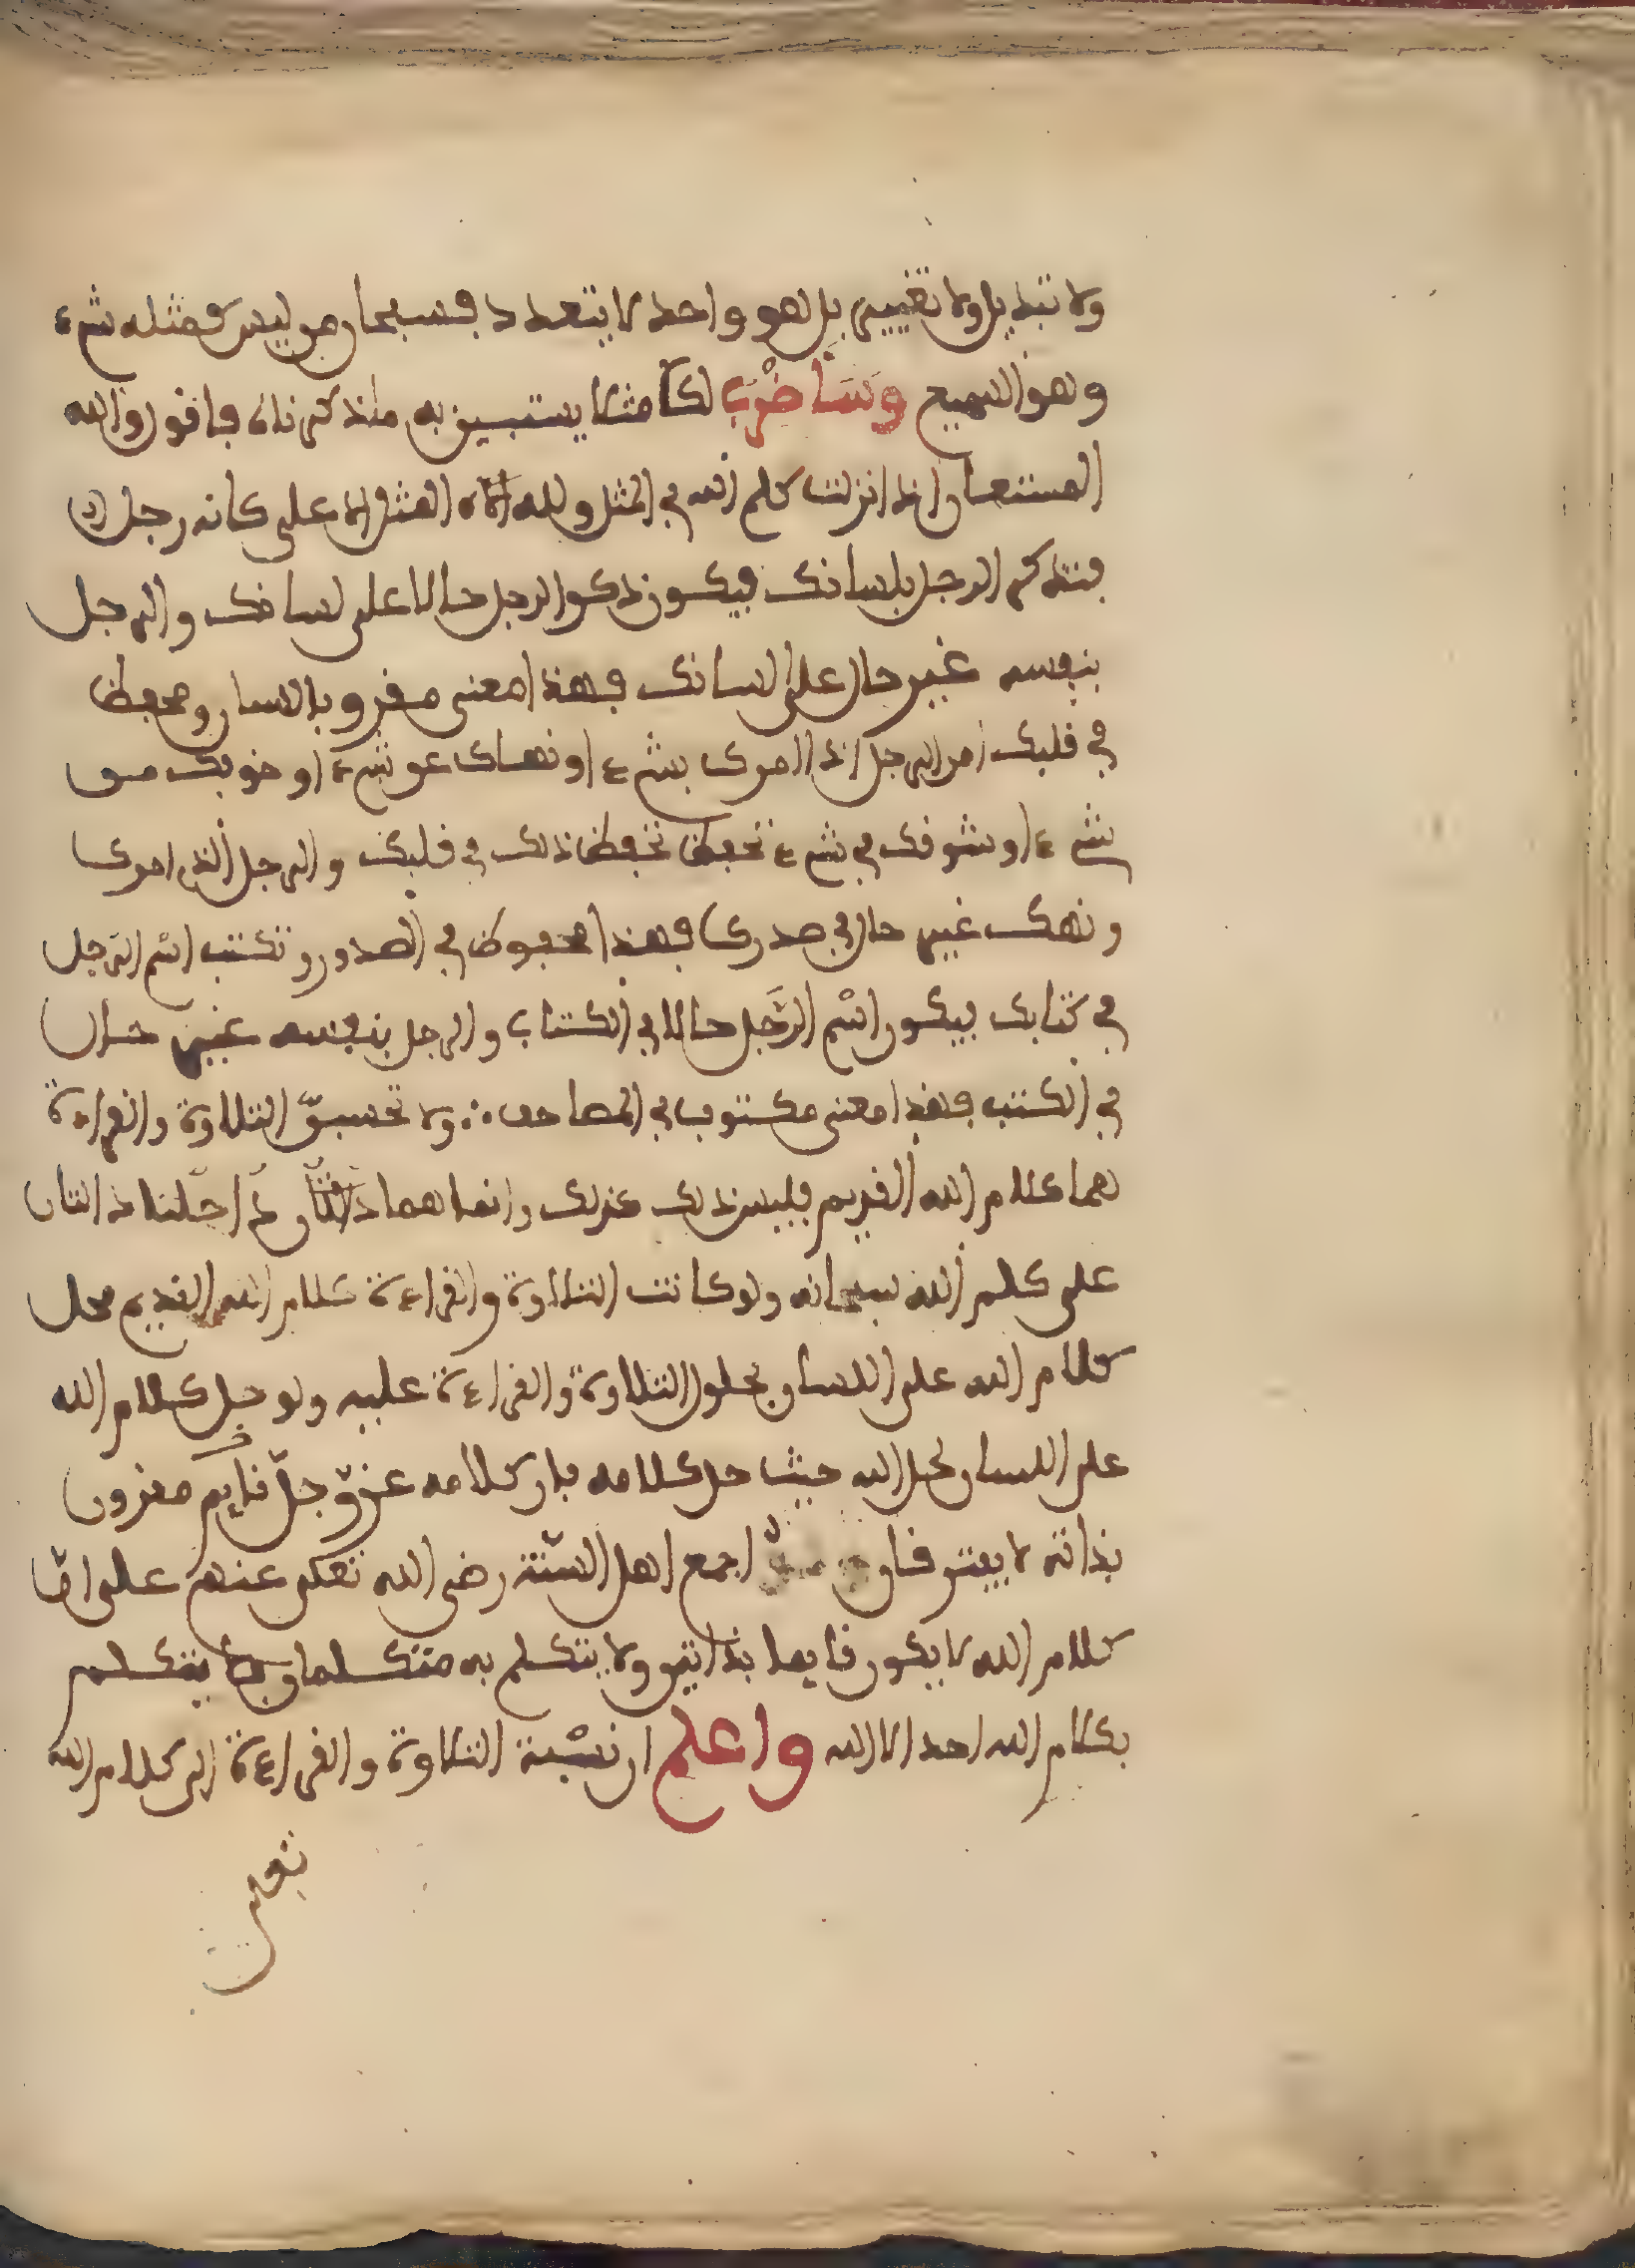 ولا تبديل ولا تغيير بل هو واحد لا يتعدد فسبحان من ليس كمثله شيء
وهو السميع وسأضرب لك مثلا يستبين به ما ذكرناه فاقول والله
المستعان اذا انزلت كلم الله في المثل ولله المثل الاعلى كانه رجل
فتذكر الرجل بلسانك فيكون ذكر الرجل حالا على لسانك والرجل
بنفسه غير حال على لسانك فهذا معنى مقرو بالسان ومحفظ
في قلبك امر الرجل اذا امرك بشيء او نهاك عن شيء او خوفك من
شيء او شوقك في شيء تحفظ تحفظ ذلك في قلبك والرجل الذي امرك
ونهك غير حال في صدرك فهذا محفوظ في الصدور وتكتب اسم الرجل
في كتابك فيكون اسم الرجل حالا في الكتاب والرجل بنفسه غير حال
في الكتب فهذا معنى مكتوب في المصاحف ولا تحسبن التلاوة والقراءة
هما كلام الله القديم فليس ذلك كذلك وانما هما دالتان
على كلم الله سبحانه ولو كانت التلاوة والقراءة كلام الله القديم محل
كلام الله على اللسان بحلول التلاوة والقراءة عليه ولو حل كلام الله
على اللسان لحل الله حيث حل كلامه فان كلامه عز وجل قايم مقرون
بذاته لا يفترقان اجمع اهل السنة رضي الله تعلى عنهم على ان
كلام الله لا يكون قايما بذاتين ولا يتكلم به متكلمان يتكلم
بكلام الله احد الا الله واعلم ان نسبة التلاوة والقراءة الى كلام الله
تعلى